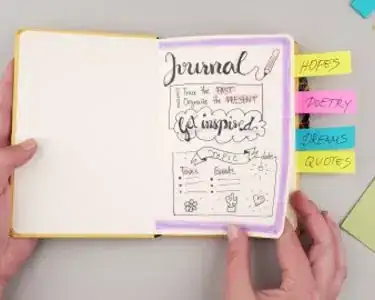 Journal
Trace the PAST
Organize the PRESENT
Get inspired
TOPIC
The date:
Tasks
Events
HOPES
POETRY
DREAMS
QUOTES